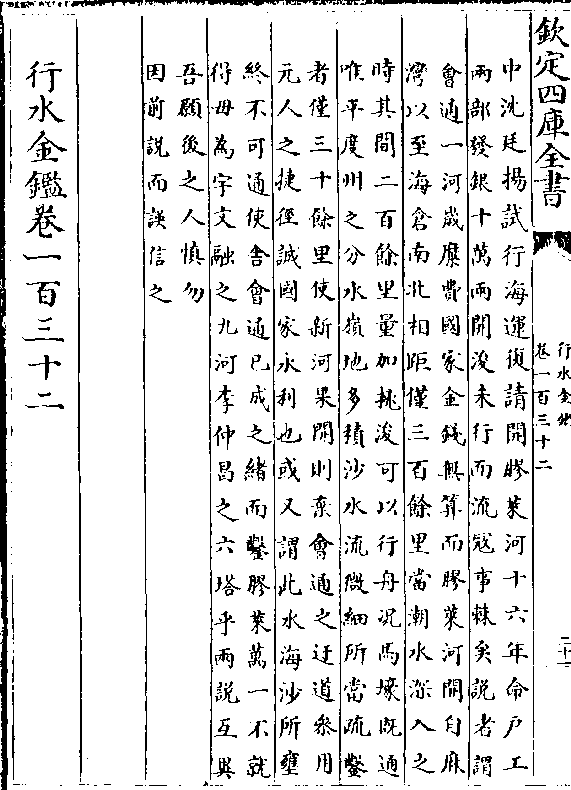 欽定四庫全書
行水金鑑
卷一百三十二
二十一
中沈廷揚試行海運復請開膠萊河十六年命戸工
兩部發銀十萬兩開浚未行而流寇事棘矣説者謂
會通一河歲糜費國家金錢無算而膠萊河開自麻
灣以至海倉南北相距僅三百餘里當潮水深入之
時其間二百餘里量加挑浚可以行舟况馬壕既通
唯平度州之分水嶺地多積沙水流微細所當疏鑿
者僅三十餘里使新河果開則棄會通之迂道參用
元人之捷徑誠國家永利也或又謂此水海沙所壅
終不可通使舍會通已成之緒而鑿膠萊萬一不就
得毋為宇文融之九河李仲昌之六塔乎兩説互異
吾願後之人慎勿
因前説而誤信之
行水金鑑卷一百三十二